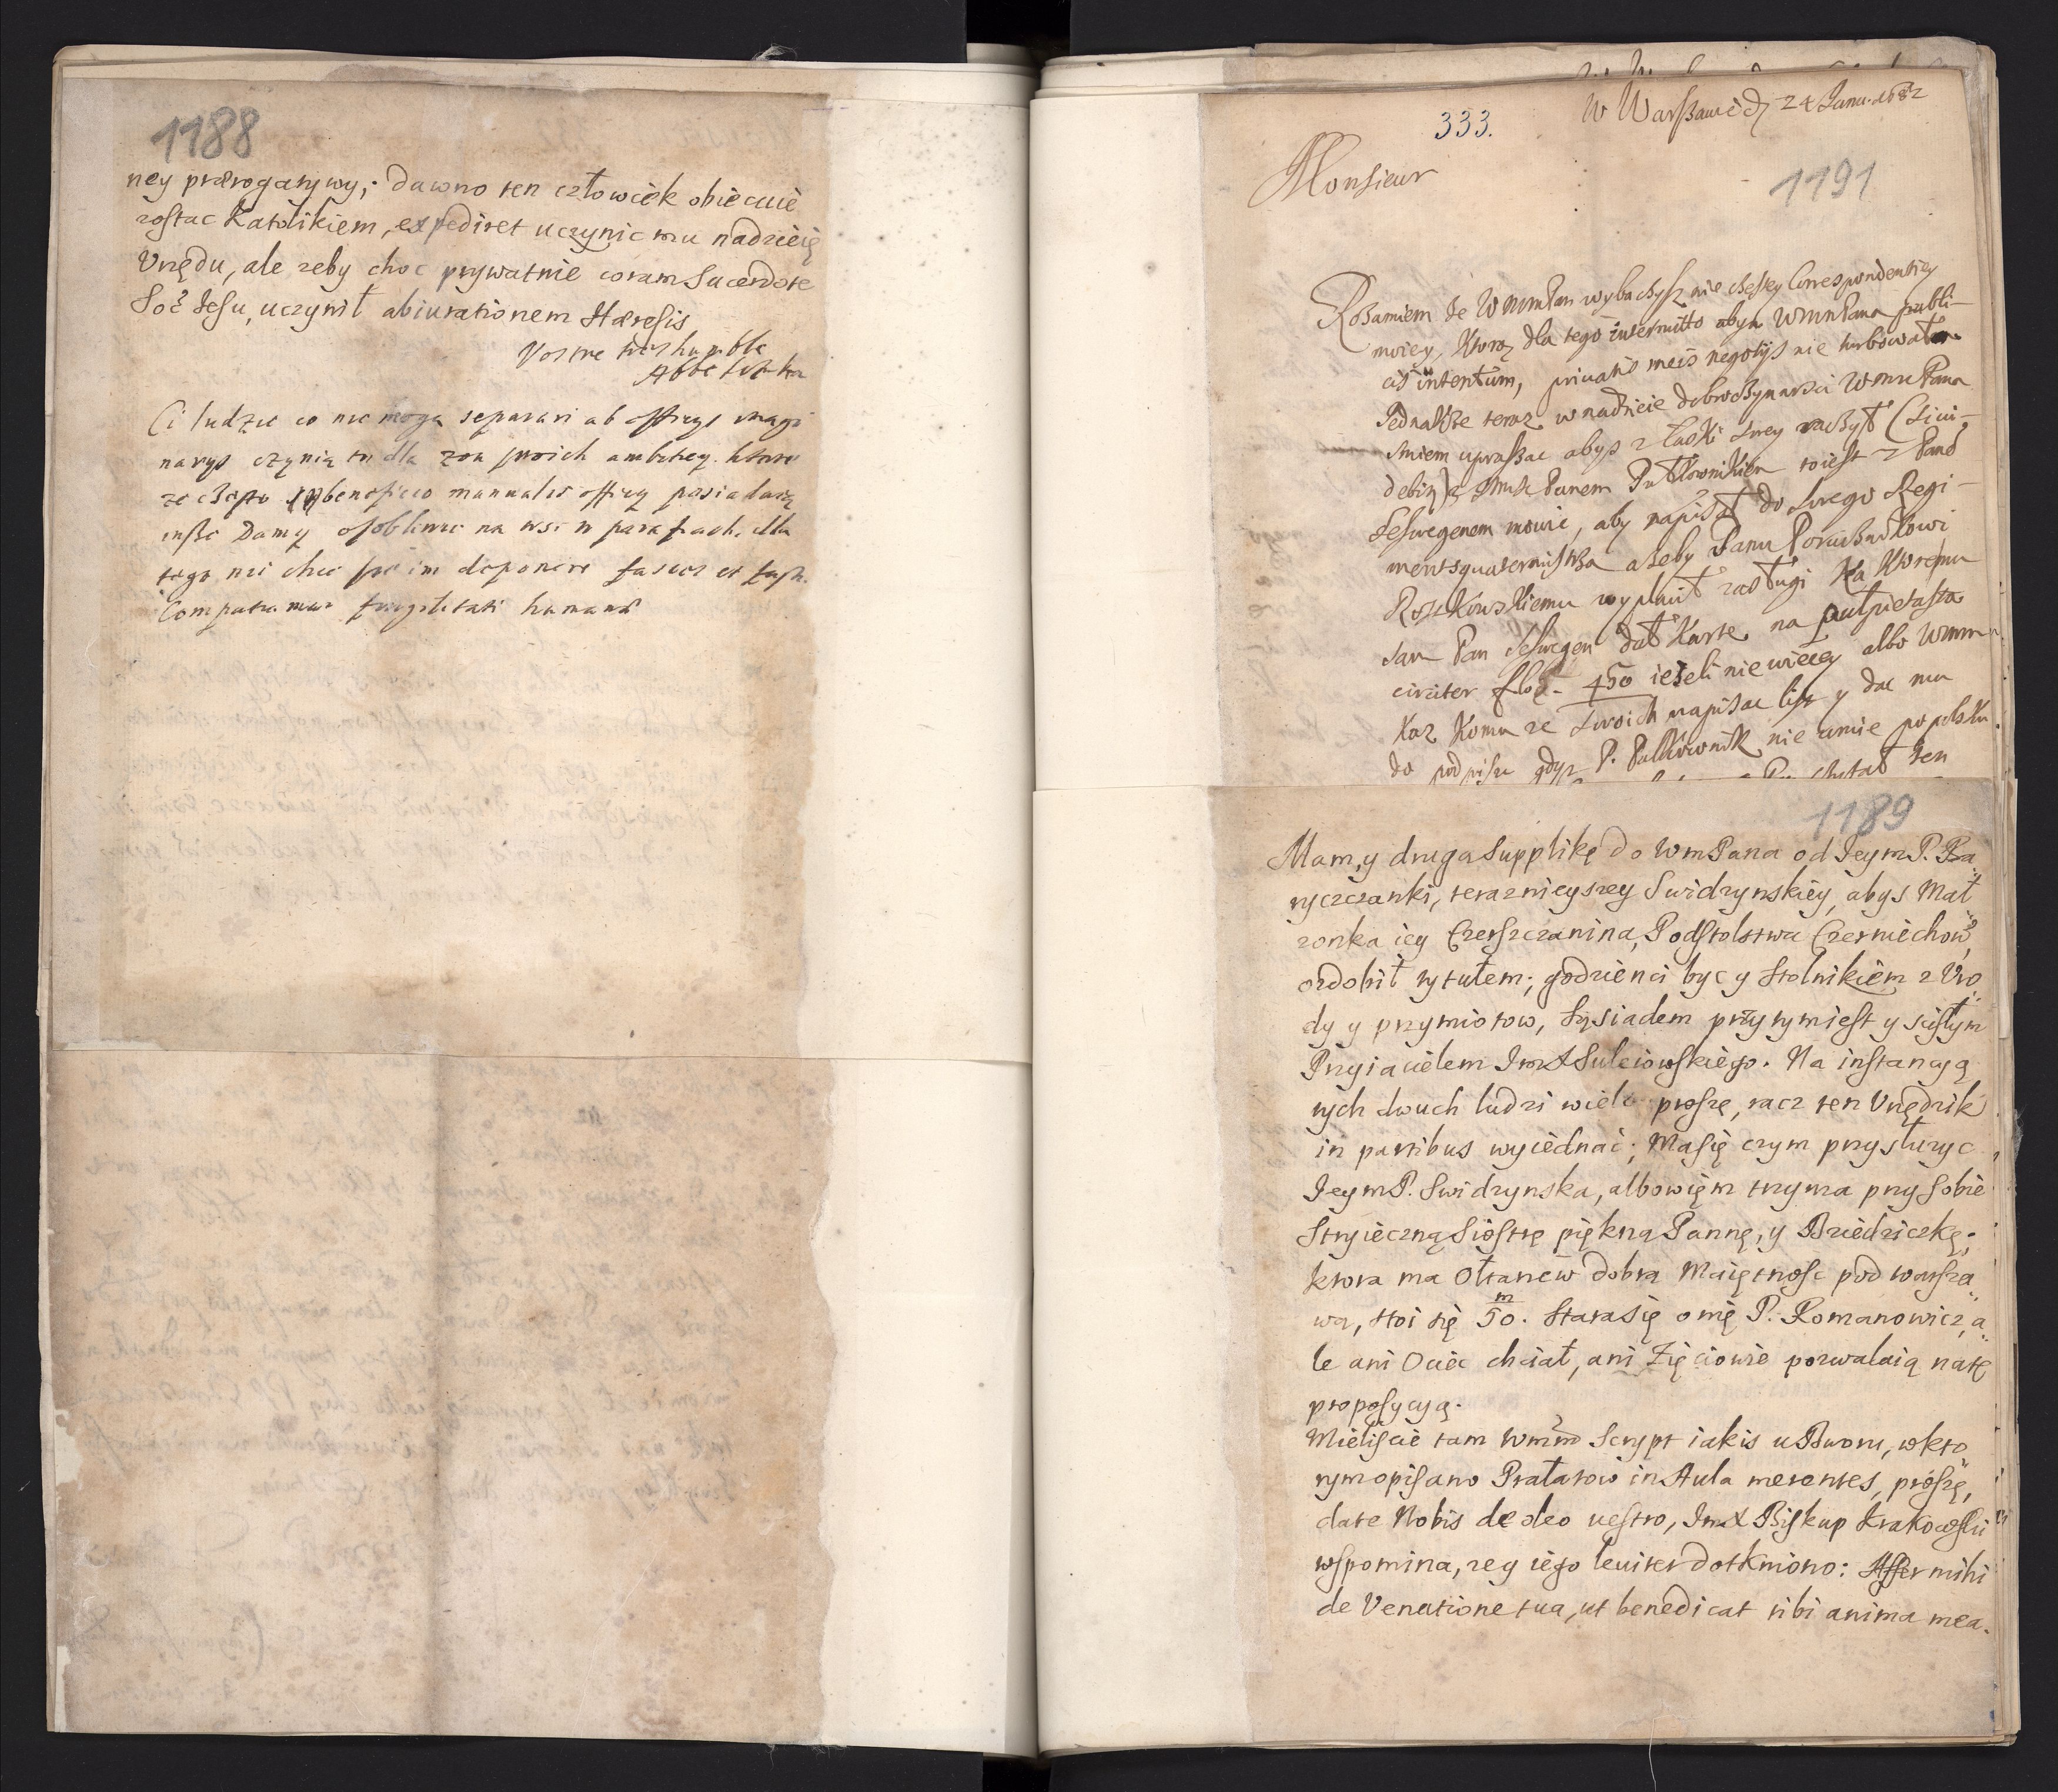 1188
ney prærogatywy; dawno ten człowiek obiecuie
zostac Katolikiem, expediret uczynic mu nadzieię
Vrzędu, ale zeby choc prywatnie coram Sacerdote
Soc Jesu, uczynił abiurationem Hæresis
Vostre tres humble
Abbe
Ci ludzie co nie mogą separari ab officys imagi
narys czynią to dla zon swoich ambitiey. ktore
ze często beneficio mannalis officy posiadaią
insze Damy osobliwie na wsi w parafiach. dla
tego nie chce się im deponere fasces et
Compatiamur fragilitati humanæ
333.
W Warszawie d 24 Janu. 1682
1191
Monsieur
Rozumiem że WMMPan wybaczysz nie częstey Correspondentiey
moiey, ktorą dla tego intermitto abym WMMPana publi-
cis intentum, privatis meis negotijs nie turbował
Jednakże teraz w nadzieie dobroczynności WMMPana
smiem upraszac abys z łaski swey raczył
z Panem Pułkownikiem toiest z Pane
Felwegenem mowic, aby napisał do swego Regi-
mentsquatermistrza ażeby Panu Porucznikowi
Roszkowskiemu wypłacił zasługi na ktoremu
sam Pan Felwegen dał kartę na pułpietasta
circiter 450 ieżeli nie więcey albo WMM
każ komu ze swoich napisac list y dac mu
do podpisu gdyz P. Pułkownik nie umie po polsku
1189
Mam y drugą Supplikę do WmPana od JeymP. Ba
ryczczanki, teraznieyszey Swidzynskiey, abys Mał
zonka iey Czerszczanina, Podstolstwa Czerniechow
ozdobił tytułem; godzien ci byc y Stolnikiem z Vro
dy y przymiotow, Sąsiadem przytym iest y scisłym
Przyiacielem ImX Sulciowskiego. Na instancyą
tych dwuch ludzi wielce proszę, racz ten Vrzędzik
in partibus wyiednać; Ma się czym przysłuzyc
JeymP. Swidzynska, albowięm trzyma przy sobie
Stryieczną Siostrę piękną Pannę, y Dziedziczkę;
ktora ma Ołtanew dobrą Maiętnosc pod warsza
wą, stoi się m 50. Stara się o nię P. Romanowicz, a
le ani Ociec chciał, ani Zięciowie pozwalaią na tę
propozycyą.
Mieliscie tam Wmm Scrypt iakis u Dworu, w kto
rym opisano Prałatow in Aula merentes, proszę,
date Nobis de oleo uestro, ImX Biskup Krakowski
wspomina, zey iego leuiter dotkniono: Affer mihi
de Venatione tua, ut benedicat tibi anima mea.